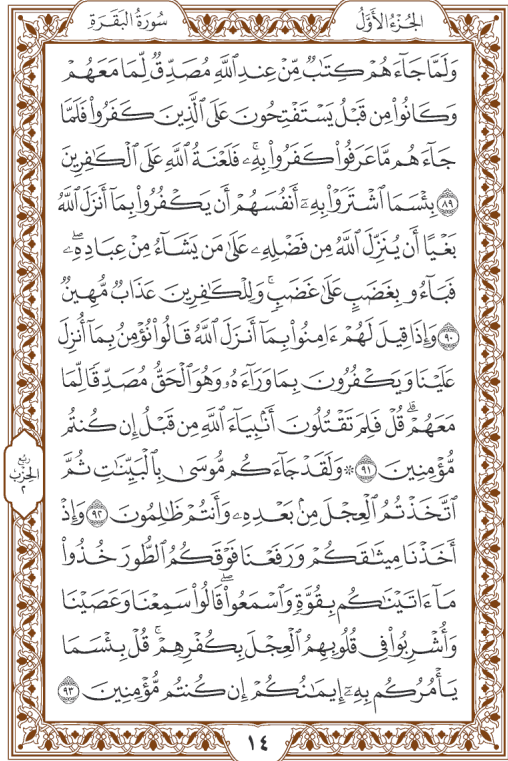 الجُزْءُ الأَوَّلُ
سُورَةُ البَقَرَةِ
وَلَمَّا جَآءَهُمْ كِتَٰبٌ مِّنْ عِندِ ٱللَّهِ مُصَدِّقٌ لِّمَا مَعَهُمْ
وَكَانُوا۟ مِن قَبْلُ يَسْتَفْتِحُونَ عَلَى ٱلَّذِينَ كَفَرُوا۟ فَلَمَّا
جَآءَهُم مَّا عَرَفُوا۟ كَفَرُوا۟ بِهِۦ ۚ فَلَعْنَةُ ٱللَّهِ عَلَى ٱلْكَٰفِرِينَ
٨٩ بِئْسَمَا ٱشْتَرَوْا۟ بِهِۦٓ أَنفُسَهُمْ أَن يَكْفُرُوا۟ بِمَآ أَنزَلَ ٱللَّهُ
بَغْيًا أَن يُنَزِّلَ ٱللَّهُ مِن فَضْلِهِۦ عَلَىٰ مَن يَشَآءُ مِنْ عِبَادِهِۦ ۖ
فَبَآءُو بِغَضَبٍ عَلَىٰ غَضَبٍ ۚ وَلِلْكَٰفِرِينَ عَذَابٌ مُّهِينٌ
٩٠ وَإِذَا قِيلَ لَهُمْ ءَامِنُوا۟ بِمَآ أَنزَلَ ٱللَّهُ قَالُوا۟ نُؤْمِنُ بِمَآ أُنزِلَ
عَلَيْنَا وَيَكْفُرُونَ بِمَا وَرَآءَهُۥ وَهُوَ ٱلْحَقُّ مُصَدِّقًا لِّمَا
مَعَهُمْ ۗ قُلْ فَلِمَ تَقْتُلُونَ أَنۢبِيَآءَ ٱللَّهِ مِن قَبْلُ إِن كُنتُم
مُّؤْمِنِينَ ٩١ ۞ وَلَقَدْ جَآءَكُم مُّوسَىٰ بِٱلْبَيِّنَٰتِ ثُمَّ
ٱتَّخَذْتُمُ ٱلْعِجْلَ مِنۢ بَعْدِهِۦ وَأَنتُمْ ظَٰلِمُونَ ٩٢ وَإِذْ
أَخَذْنَا مِيثَٰقَكُمْ وَرَفَعْنَا فَوْقَكُمُ ٱلطُّورَ خُذُوا۟
مَآ ءَاتَيْنَٰكُم بِقُوَّةٍ وَٱسْمَعُوا۟ ۖ قَالُوا۟ سَمِعْنَا وَعَصَيْنَا
وَأُشْرِبُوا۟ فِى قُلُوبِهِمُ ٱلْعِجْلَ بِكُفْرِهِمْ ۚ قُلْ بِئْسَمَا
يَأْمُرُكُم بِهِۦٓ إِيمَٰنُكُمْ إِن كُنتُم مُّؤْمِنِينَ ٩٣
ربع
الحزب
٢
١٤